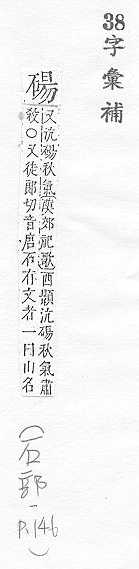 38字彙補
碭
又沆碭秋氣漢郊祀歌西顥沆碭秋氣肅
殺〇又徒郎切音唐石有文者一曰山名
(石部-P.146)